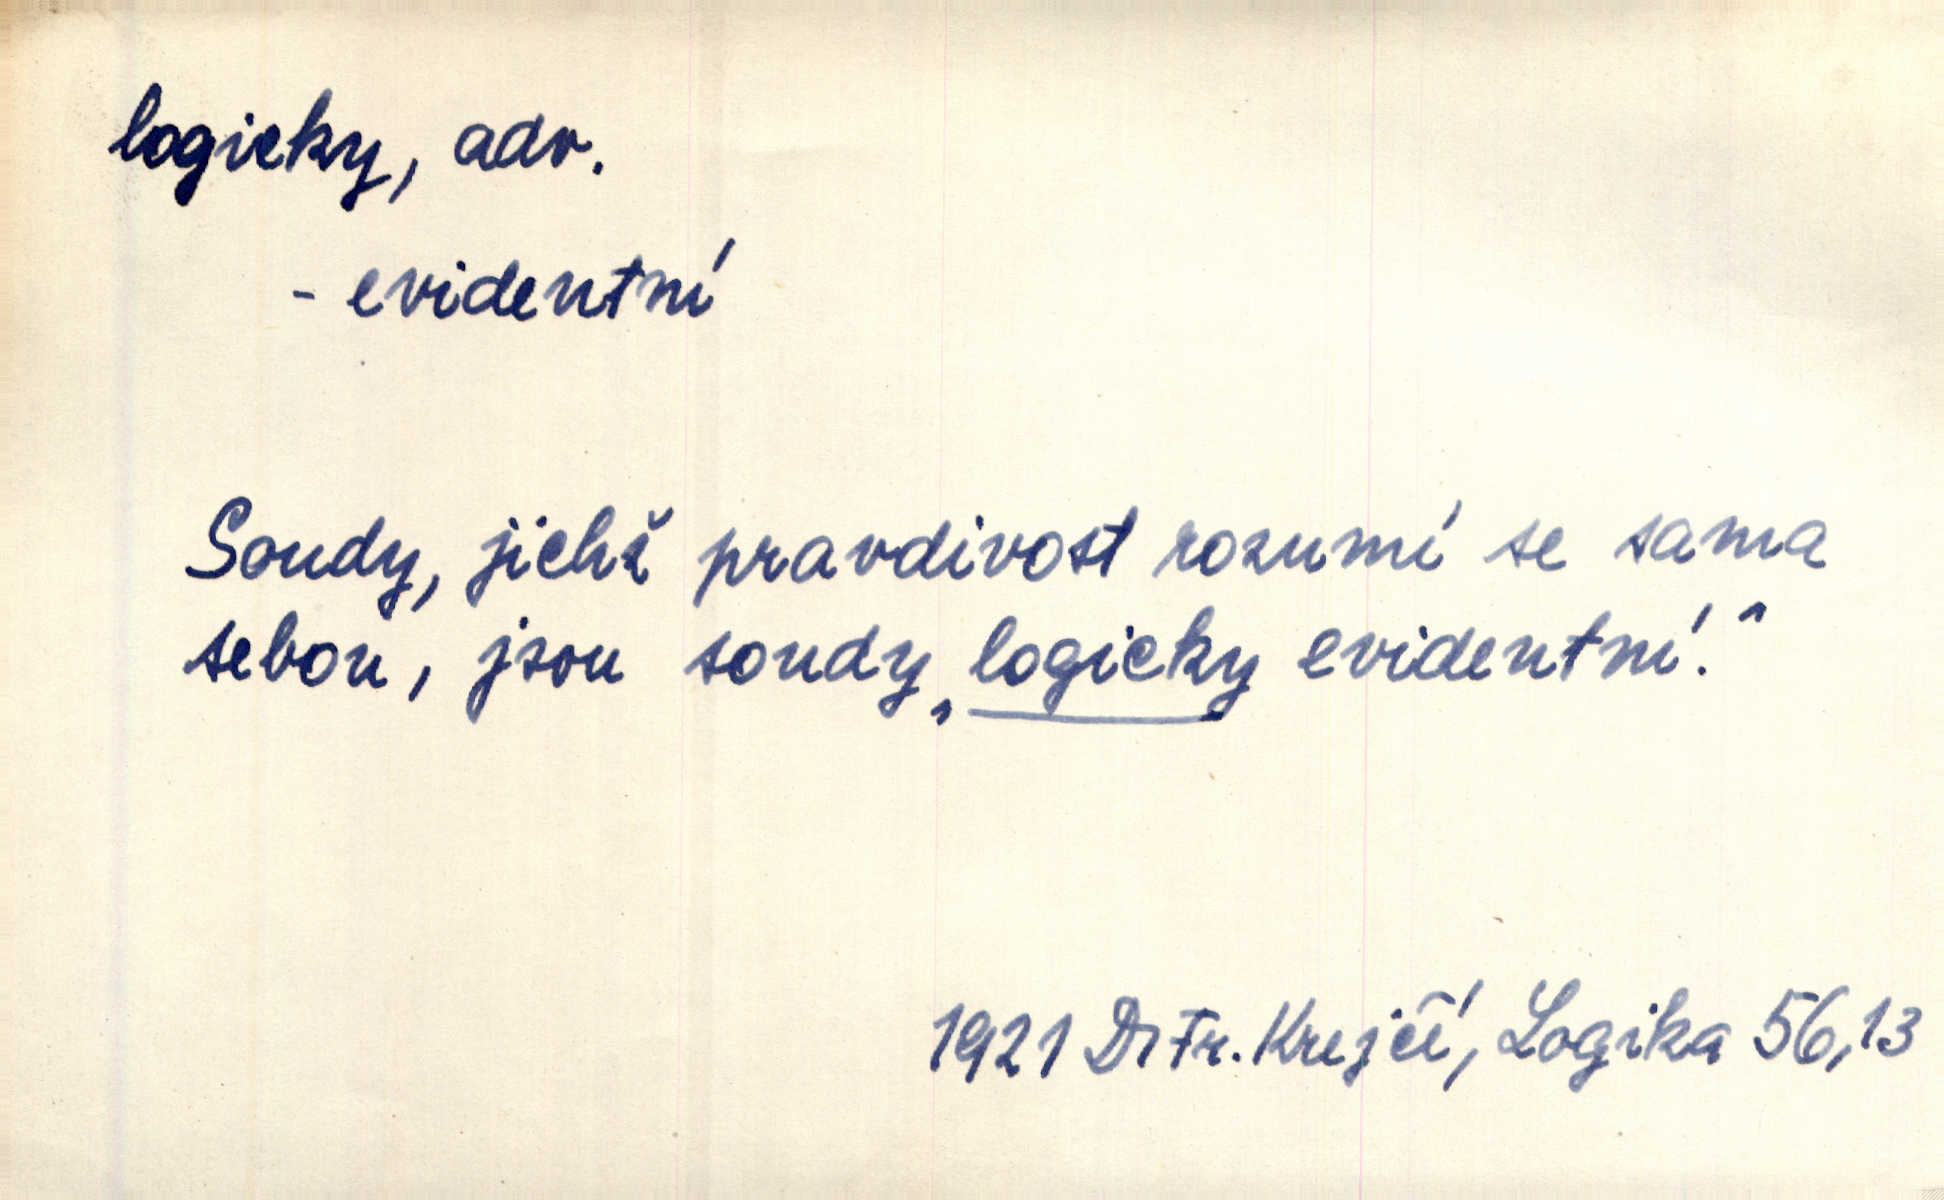 logicky, adv.
- evidentní
Soudy, jichž pravdivost rozumí se sama
sebou, jsou soudy „logicky evidentní.“
1921 Dr Fr. Krejčí, Logika 56,13